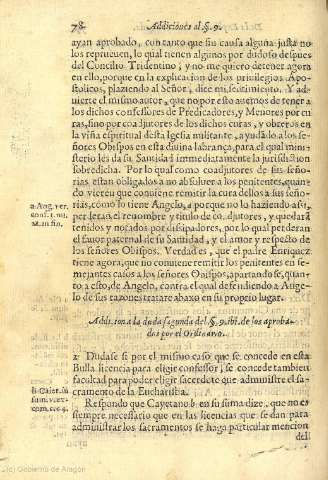 78 Addiciones al §. 9.
ayan aprobado, con tanto que sin causa alguna justa no
los reprueuen, lo qual tienen algunos por dudoso despues
del Concilio Tridentino, y no me quiero detener agora
en ello, porque en la explicacion de los priuilegios Apo-
stolicos, plaziendo al Señor, dire mi sentimiento. Y ad-
uierte el mismo autor, que no por esto auemos de tener a
los dichos confessores de Predicadores, y Menores por cu
ras, sino por coadjutores de los dichos curas, y obreros en
la viña espiritual desta Iglesia militante, ayudādo a los se-
ñores Obispos en esta diuina labrança, para el qual mini-
sterio les da su Santidad immediatamente la jurisdiction
sobredicha. Por lo qual como coadjutores de sus seño-
rias estan obligados a no absoluer a los penitentes, quan-
do vieren que conuiene remitir la cura dellos a sus seño-
rias, como lo tiene Angelo, a porque no lo haziendo assi,
perderan el renombre y titulo de coadjutores, y quedarā
tenidos y notados por disipadores, por lo qual perderan
el fauor paternal de su Santidad, y el amor y respecto de
los señores Obispos. Verdad es, que el padre Enriquez
tiene agora, que no conuiene remitir los penitentes en se-
mejantes casos a los señores Obispos, apartandose, quan-
to a esto, de Angelo, contra el qual defendiendo a Ange-
lo de sus razones tratare abaxo en su proprio lugar.
a. Ang. ver.
conf. 1. nu.
in fin.
Addition a la duda segunda del §. 9. ibi, de los aproba-
dos por el Ordinario.
2. Dudase si por el mismo caso que se concede en esta
Bulla licencia para eligir confessor, se concede tambien
facultad para poder eligir sacerdote que administre el sa-
cramento de la Eucharistia.
Respondo que Cayetano b en su suma dize, que no es
siempre necessario que en las licencias que se dan para
administrar los sacramentos se haga particular mencion
del
b. Caiet. in
sum. ver.
(c) Gobierno de Aragón